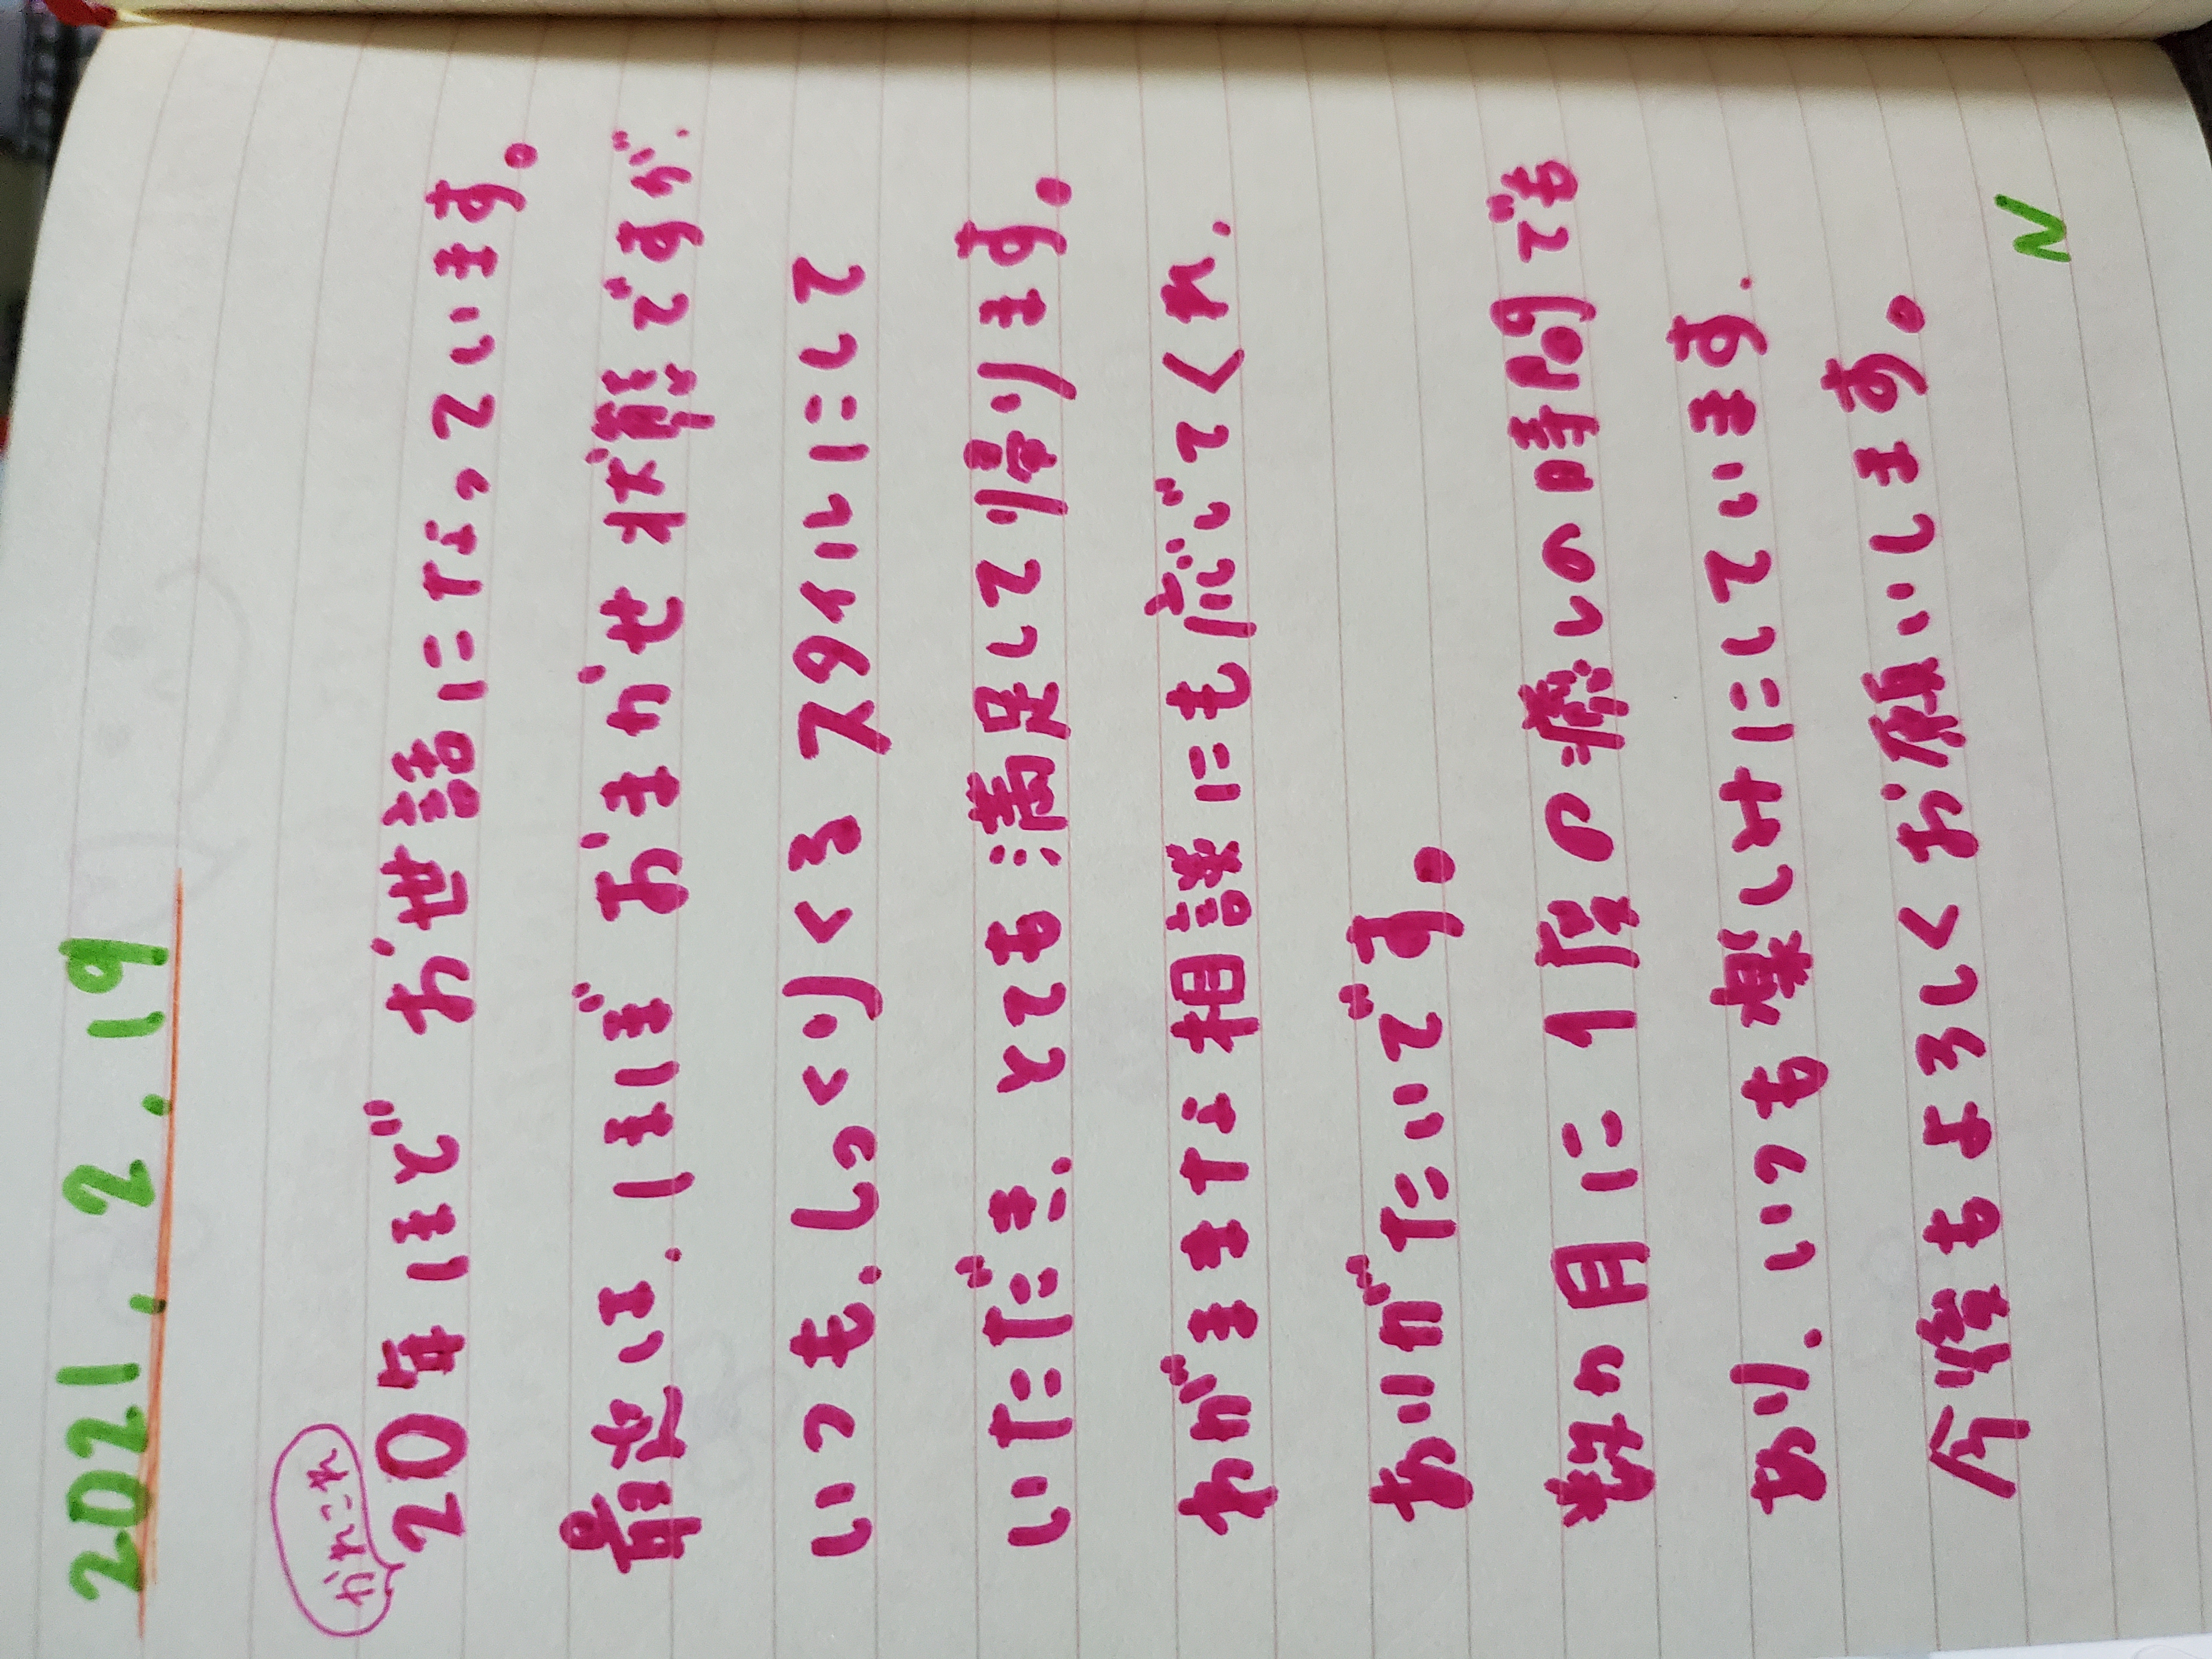 2021. 2. 19
かれこれ
20年ほど お世話になっています。
最近は、ほぼ おまかせ 状態ですが、
いつも、しっくりくる スタイルにして
いただき、とても 満足して 帰ります。
わがままな 相談にも 応じてくれ、
ありがたいです。
数ヵ月に 1度の 癒しの時間でも
あり、いつも 楽しみにしています。
今後もよろしくお願いします。
N